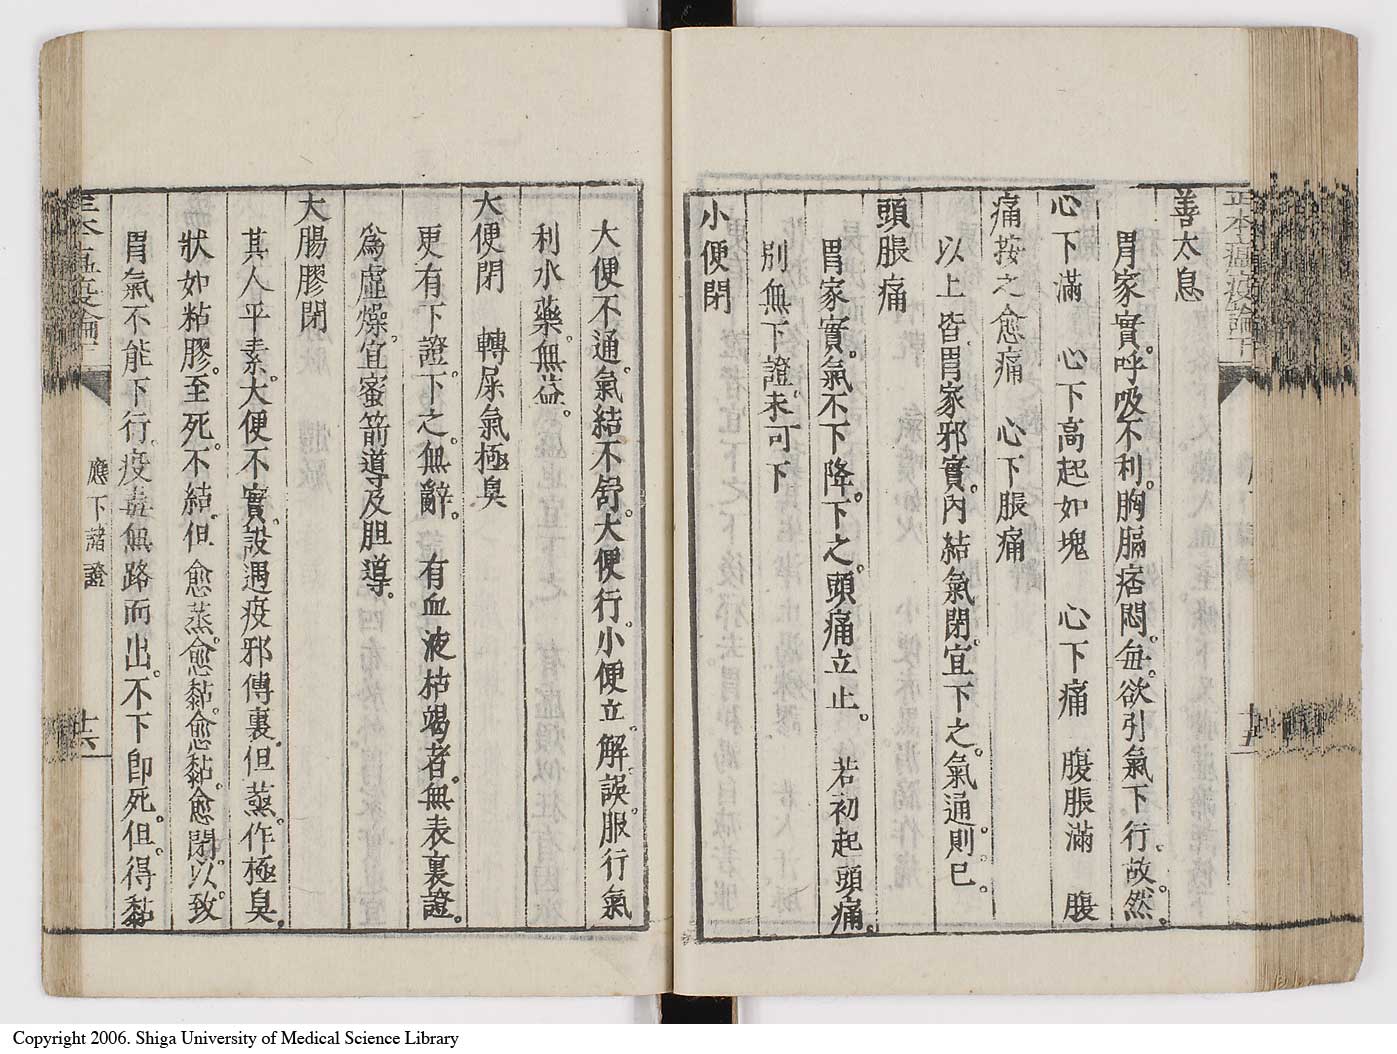 善太息
胃家實。呼吸不利。胸膈痞悶。每。欲引氣下行。故。然。
心下滿　心下高起如塊　心下痛　腹脹滿　腹
痛按之愈痛　心下脹痛
以上皆胃家邪實。內結氣閉。宜下之。氣通則已。
頭脹痛
胃家實。氣不下降。下之。頭痛立止。若初起頭痛。
別無下證。未可下
小便閉
大便不通。氣結不舒。大便行。小便立。解誤。服行氣
利水藥。無益。
大便閉　轉屎氣極臭
更有下證。下之。無辭。有血液枯竭者。無表裏證。
爲虛燥。宜蜜箭導及胆導。
大腸膠閉
其人平素。大便不實。設遇疫邪傳裏。但蒸。作極臭。
狀如粘膠。至死。不結。但愈蒸。愈黏。愈黏。愈閉。以。致
胃氣不能下行。疫毒無路而出。不下卽死。但。得黏
應下諸證
十六